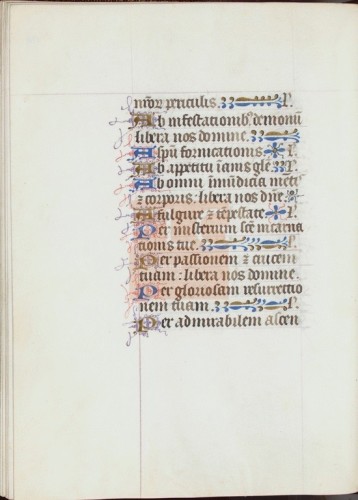 m̃oꝝ periculis. L̃.
Ab infestationibꝰ demonũ
libera nos domine.
A spũ fornicationis. L̃.
Ab appetitu inanis głe. L̃.
Ab omni inmũdicia mẽtis
⁊ corporis: libera nos dñe.
A fulgure ⁊ tẽpestate L̃.
Per misterium scẽ incarna
tionis tue. L̃.
Per passionem ⁊ crucem
tuam: libera nos domine.
Per gloriosam resurrectio
nem tuam. L̃.
Per admirabilem ascen